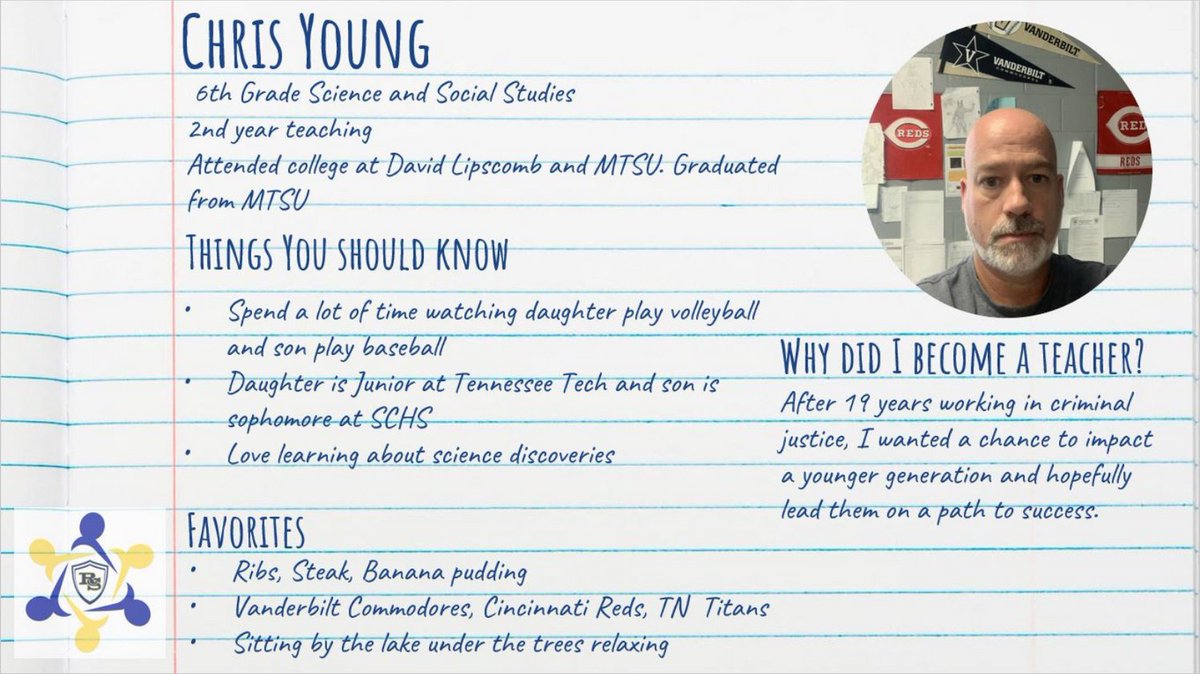 Chris Young
6th Grade Science and Social Studies
2nd year teaching
Attended college at David Lipscomb and MTSU. Graduated
from MTSU
Things You should know
• Spend a lot of time watching daughter play volleyball
and son play baseball
• Daughter is Junior at Tennessee Tech and son is
sophomore at SCHS
• Love learning about science discoveries
Favorites
• Ribs, Steak, Banana pudding
• Vanderbilt Commodores, Cincinnati Reds, TN Titans
• Sitting by the lake under the trees relaxing
Why did I become a teacher?
After 19 years working in criminal
justice, I wanted a chance to impact
a younger generation and hopefully
lead them on a path to success.
VANDERBILT
V VANDERBILT
REDS
REDS
REDS
RS